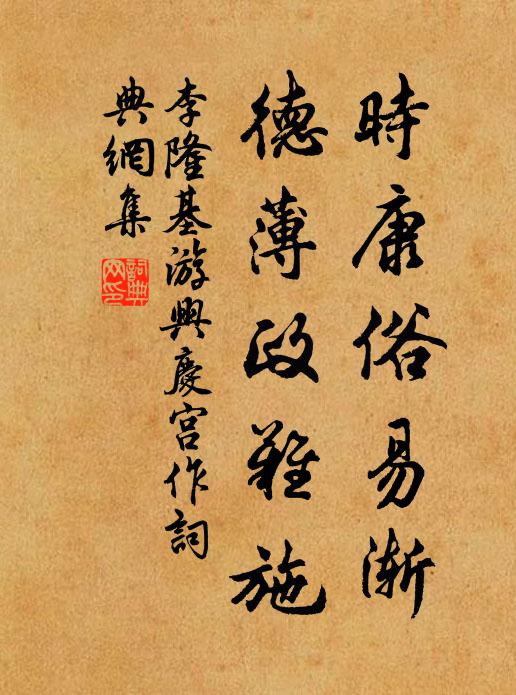 時康俗易漸
德薄政難施
李隆基游興慶宮作詞
典網集
詞典
网印